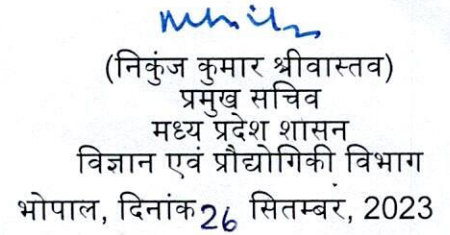 (निकुंज कुमार श्रीवास्तव)
प्रमुख सचिव
मध्य प्रदेश शासन
विज्ञान एवं प्रौद्योगिकी विभाग
भोपाल, दिनांक 26 सितम्बर, 2023